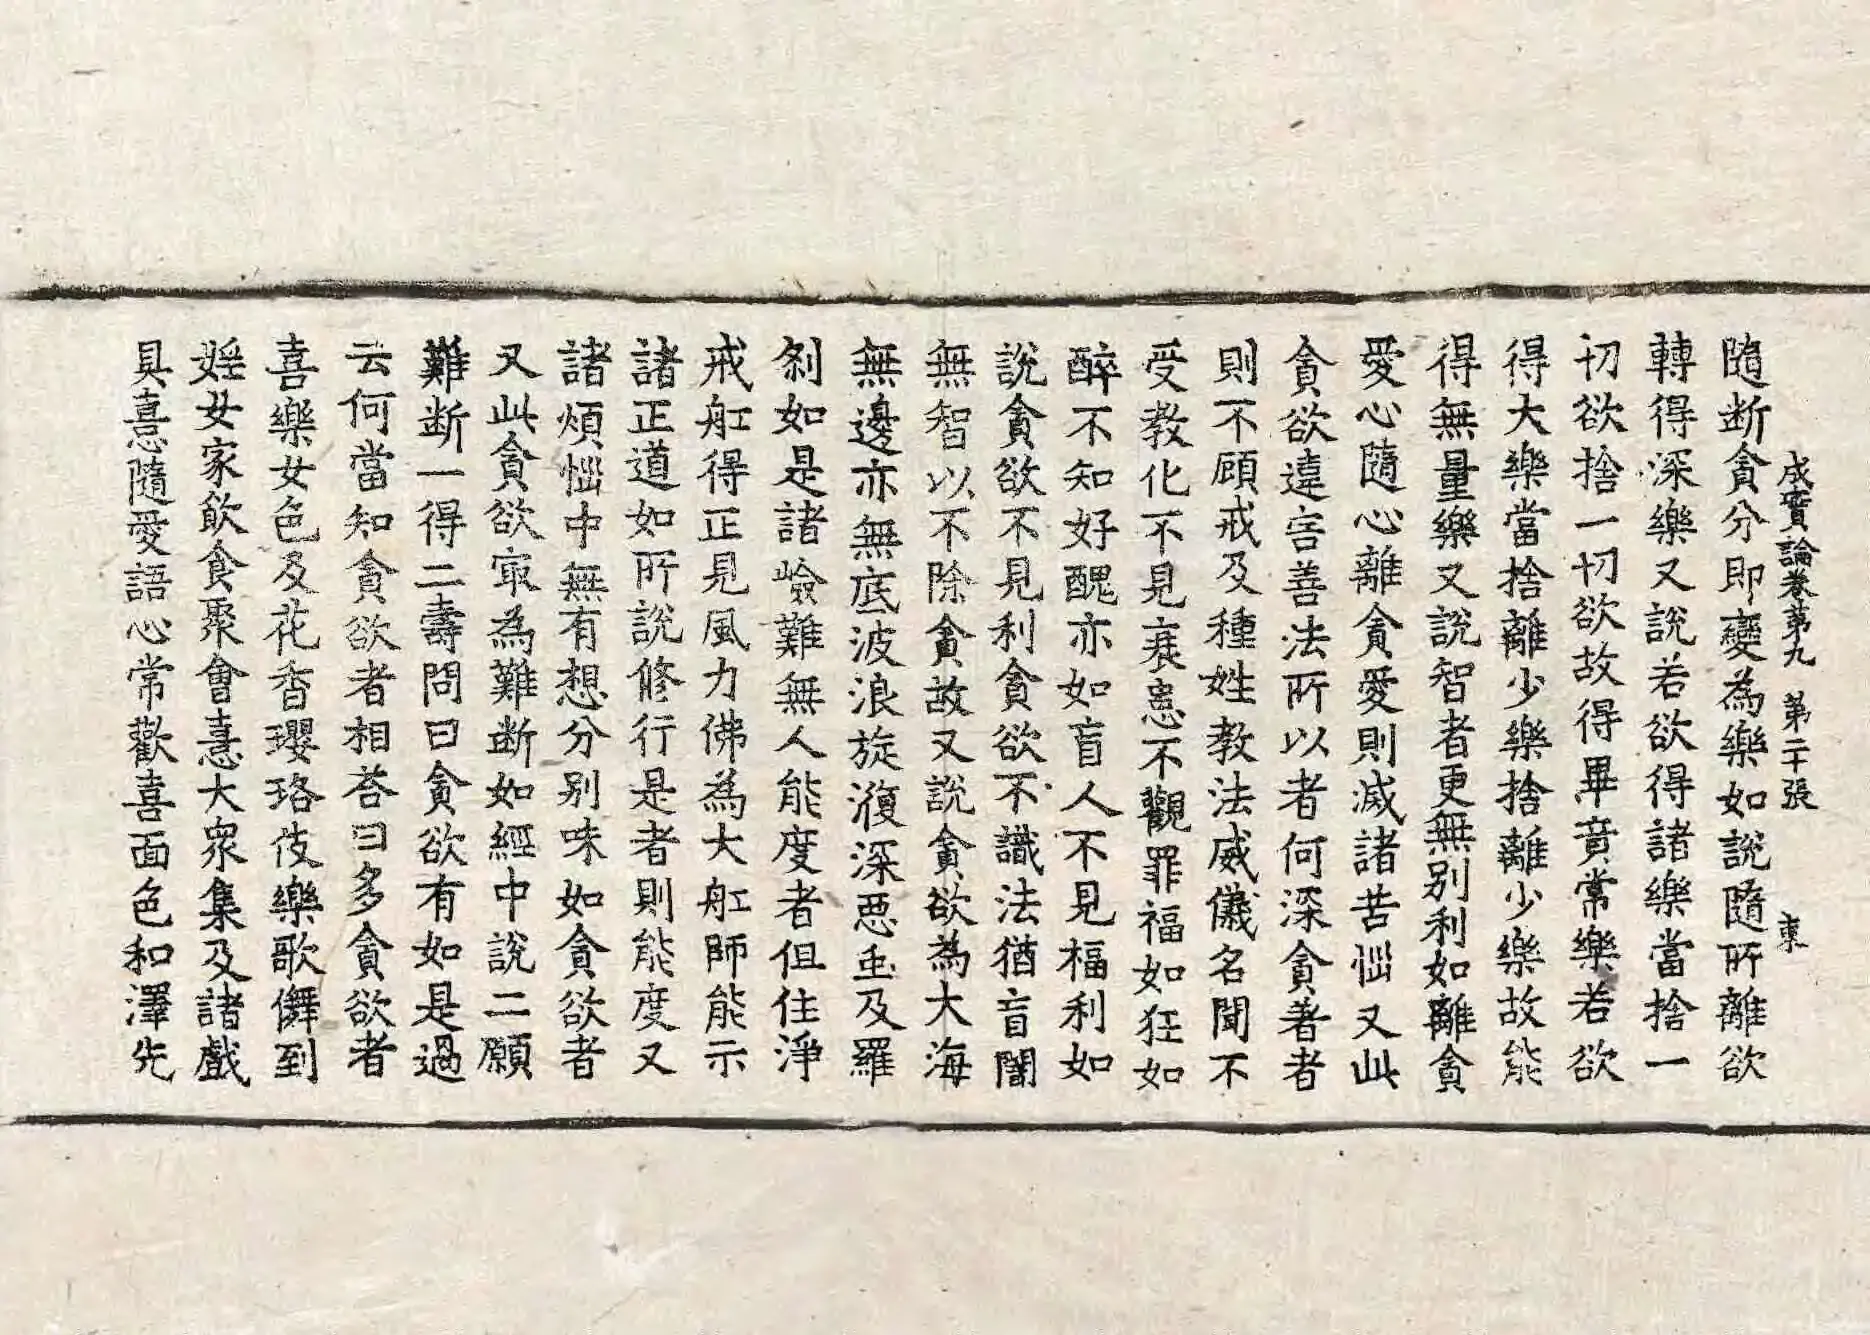 成實論卷第九　第二十張　東
隨断貪分即變為樂如說隨所離欲
轉得深樂又說若欲得諸樂當捨一
切欲捨一切欲故得畢竟常樂若欲
得大樂當捨離少樂捨離少樂故能
得無量樂又說智者更無別利如離貪
愛心隨心離貪愛則滅諸苦惱又此
貪欲違害善法所以者何深貪著者
則不顧戒及種姓教法威儀名聞不
受教化不見衰患不觀罪福如狂如
醉不知好醜亦如盲人不見福利如
說貪欲不見利貪欲不識法猶盲闇
無智以不除貪故又說貪欲為大海
無邊亦無底波浪旋澓深惡虫及羅
刹如是諸嶮難無人能度者但住淨
戒舡得正見風力佛為大舡師能示
諸正道如所說修行是者則能度又
諸煩惱中無有想分別味如貪欲者
又此貪欲冣為難断如經中說二願
難断一得二壽問曰貪欲有如是過
云何當知貪欲者相荅曰多貪欲者
喜樂女色及花香瓔珞伎樂歌儛到
婬女家飲食聚會憙大眾集及諸戲
具憙隨愛語心常歡喜面色和澤先